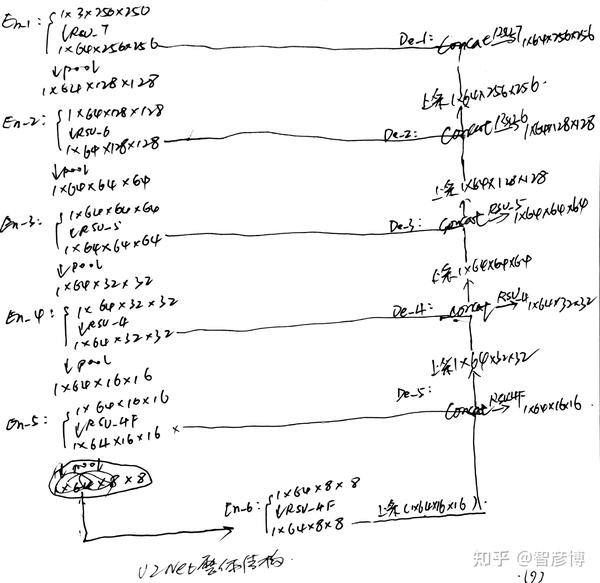 En-1: 1×3×256×250
↓RSU_7
1×64×256×256
De-1: Concat RSU-7 1×64×256×256
↓pool
1×64×128×128
上采1×64×256×256
En-2: 1×64×128×128
↓RSU_6
1×64×128×128
De-2: Concat RSU-6 1×64×128×128
↓pool
1×64×64×64
上采1×64×128×128
En-3: 1×64×64×64
↓RSU-5
1×64×64×64
De-3: Concat RSU-5 1×64×64×64
↓pool
1×64×32×32
上采1×64×64×64
En-4: 1×64×32×32
↓RSU-4
1×64×32×32
De-4: concat RSU-4 1×64×32×32
↓pool
1×64×16×16
上采1×64×32×32
En-5: 1×64×16×16
↓RSU-4F
1×64×16×16
De-5: Concat RSU4F 1×64×16×16
↓pool
1×64×8×8
En-6: 1×64×8×8
↓RSU-4F
1×64×8×8
上采(1×64×16×16)
U2Net整体结构
知乎 @智彦博
(9)